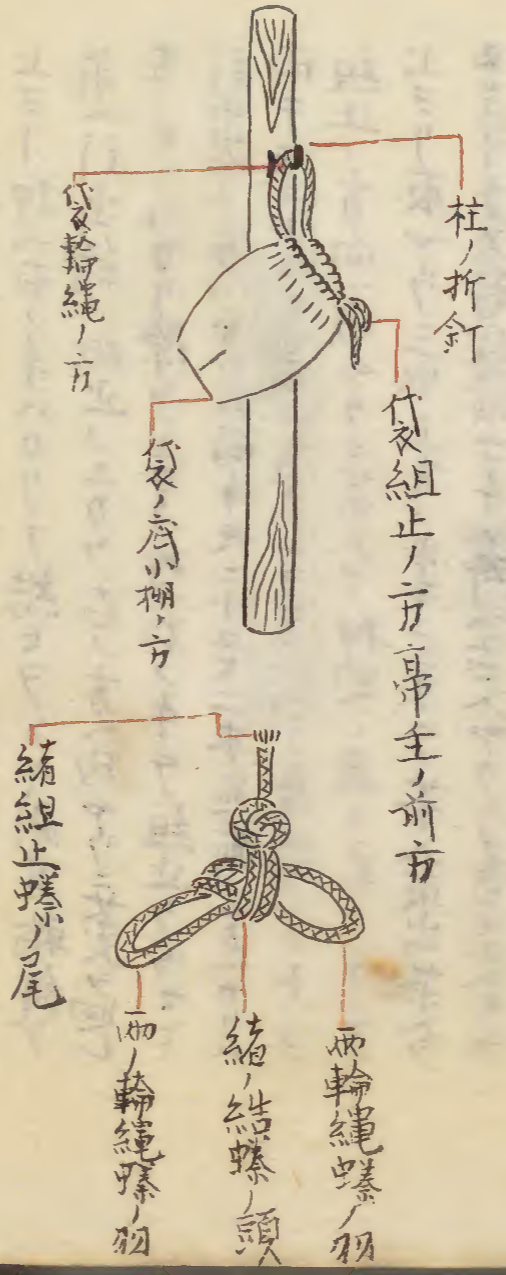 柱ノ折釘
袋組止ノ方亭主ノ前方
袋輪縄ノ方
袋ノ底小棚ノ方
緒組止蝶ノ尾
両輪縄蝶ノ羽
緒ノ結蝶ノ頭
両ノ輪縄蝶ノ羽